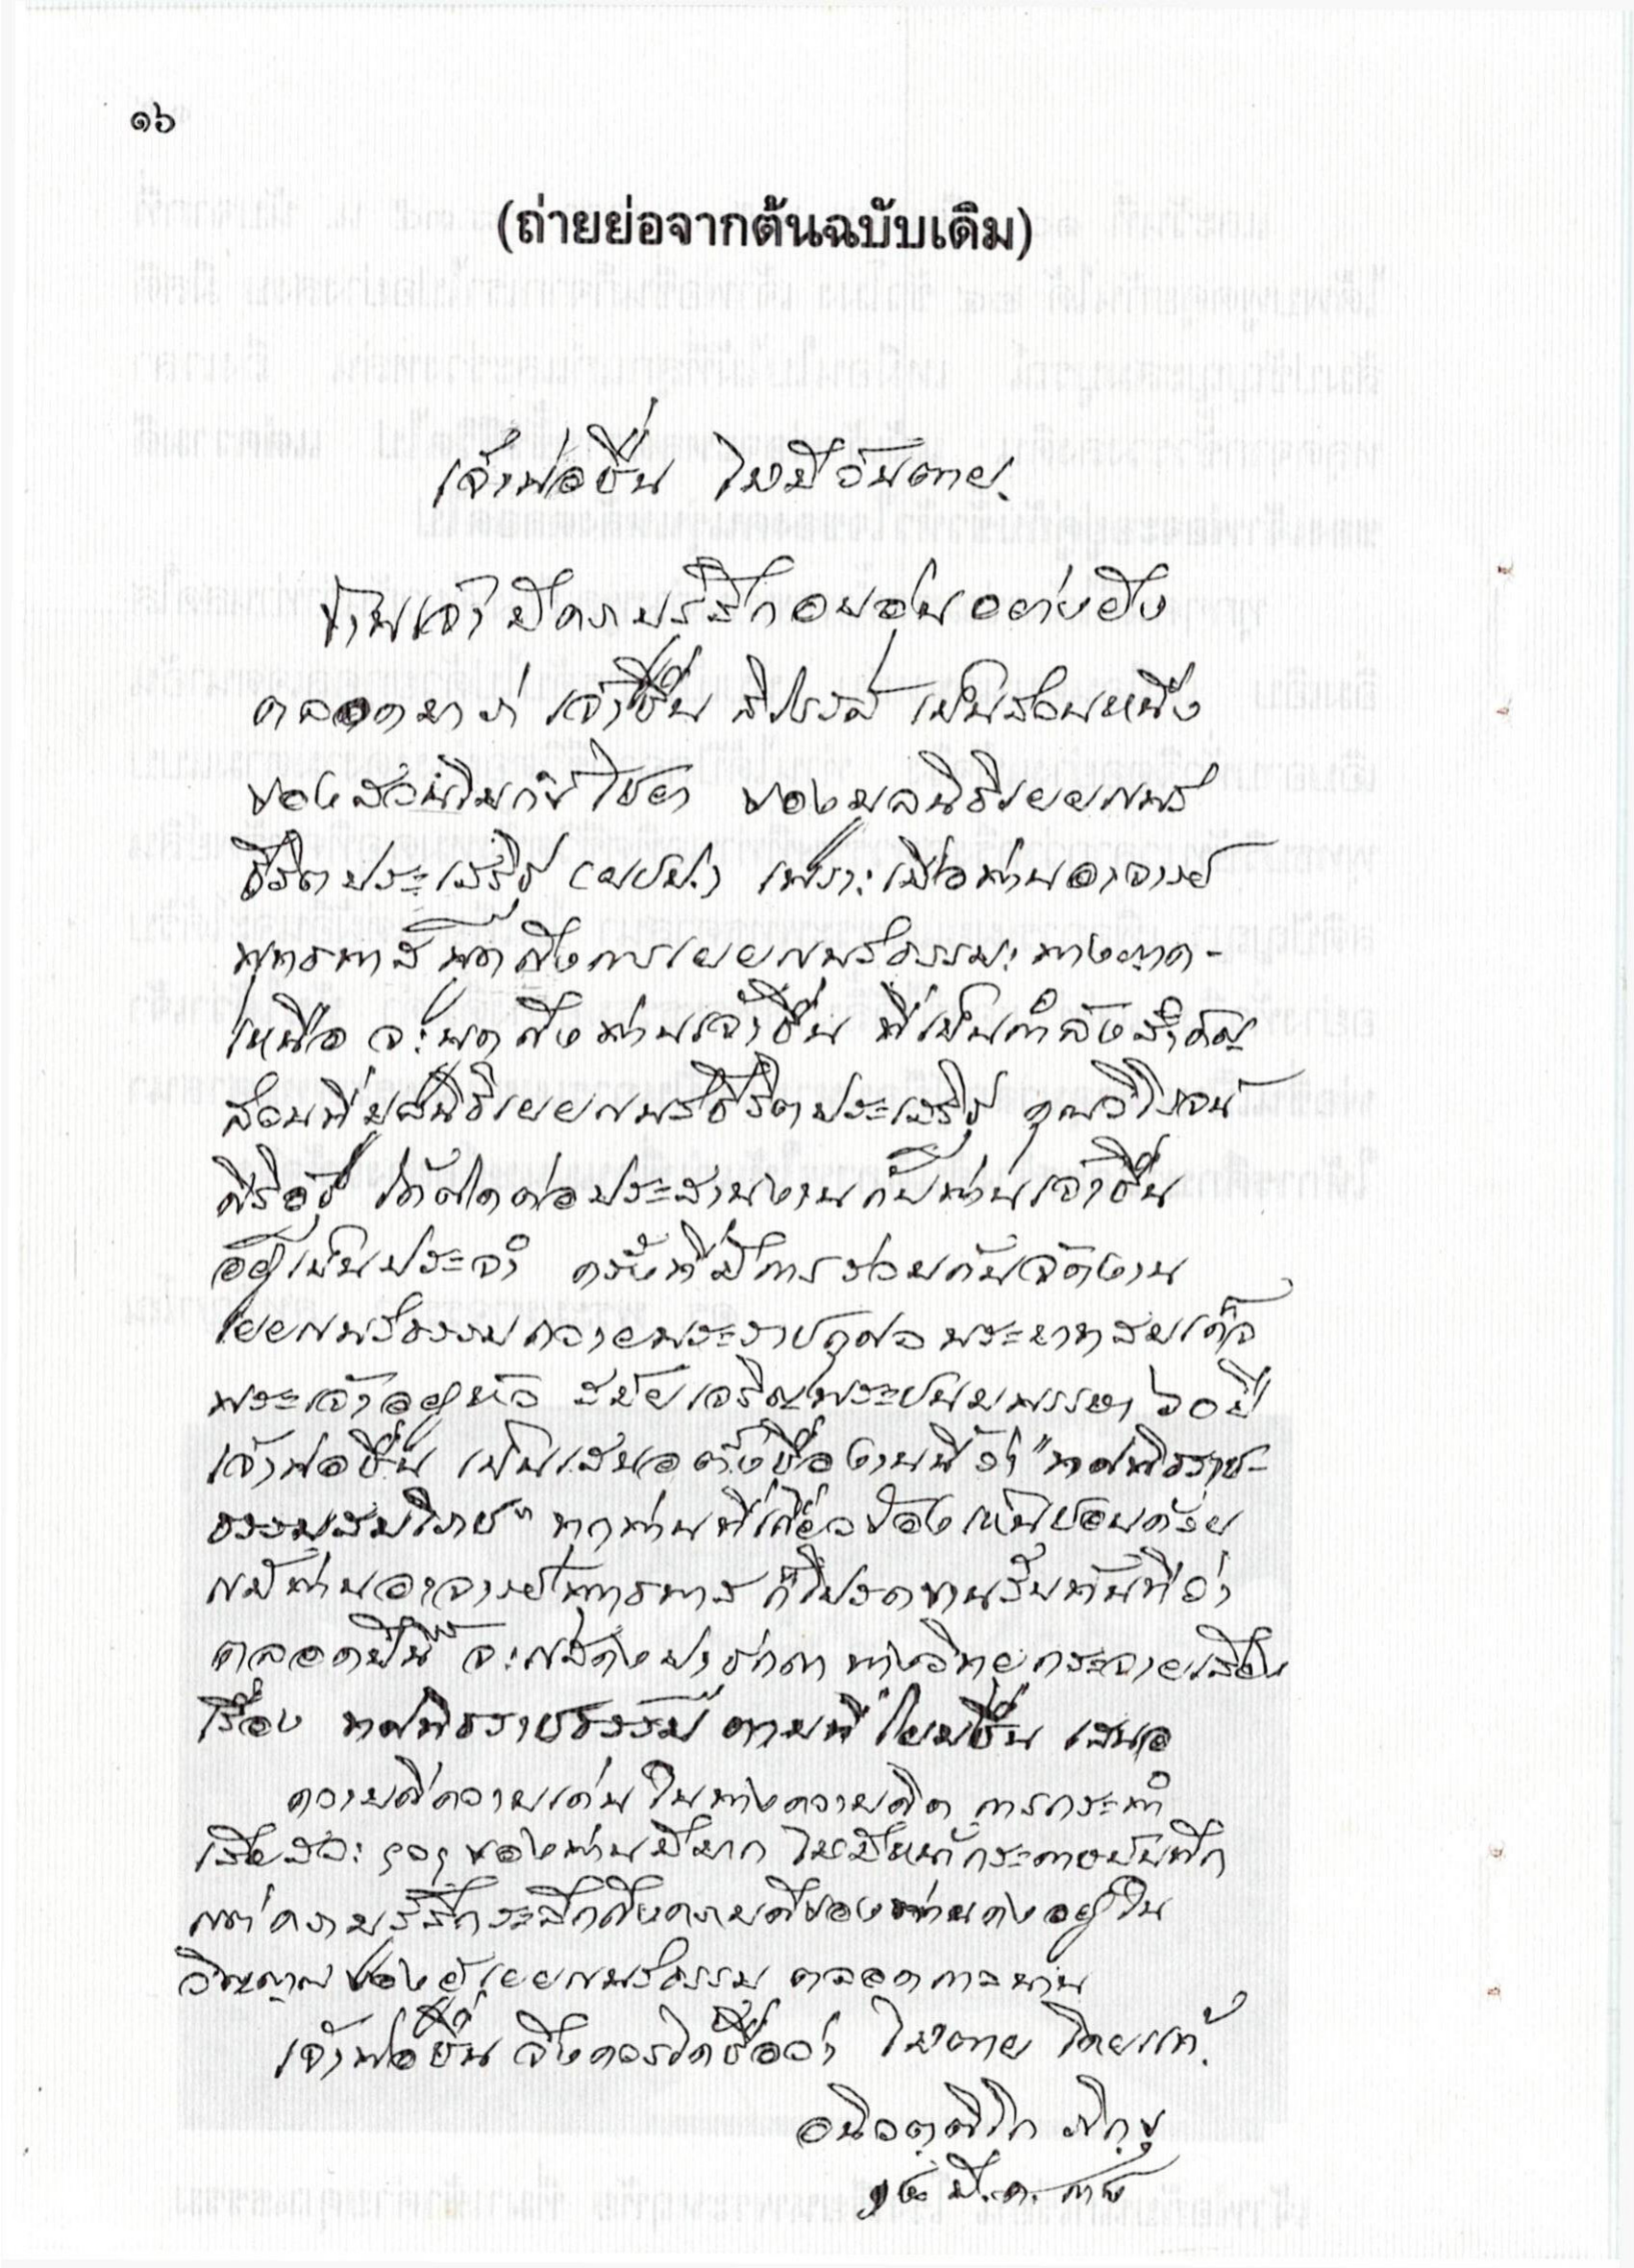 ๑๖
(ถ่ายย่อจากต้นฉบับเดิม)
เจ้าพ่อชื่น ไม่มีวันตาย.
ข้าพเจ้ามีความรู้สึกอบอุ่นอย่างยิ่ง
ตลอดมาว่า เจ้าชื่น สิโรรส เป็นส่วนหนึ่ง
ของสวน ของมูลนิธิเผยแพร่
ชีวิตประเสริฐ (ผชป.) เพราะเมื่อท่านอาจารย์
พุทธทาส พูดถึงการเผยแพร่ธรรมะทางภาค-
เหนือ จะพูดถึงท่านเจ้าชื่น ที่เป็นกำลังสำคัญ
ส่วนที่มูลนิธิเผยแพร่ชีวิตประเสริฐ คุณวิโรจน์
ศิริอัฐ ได้ติดต่อประสานงานกับท่านเจ้าชื่น
อยู่เป็นประจำ ครั้งที่มีการร่วมกันจัดงาน
เผยแพร่ธรรมถวายพระราชกุศล พระบาทสมเด็จ
พระเจ้าอยู่หัว สมัยเจริญพระชนมพรรษา ๖๐ ปี
เจ้าพ่อชื่น เป็นเสนอตั้งชื่องานนี้ว่า "ทศพิธราช-
ธรรมสมโภช" ทุกท่านที่เกี่ยวข้องเห็นชอบด้วย
แม้ท่านอาจารย์พุทธทาส ก็โปรดขานรับทันทีว่า
ตลอดปีนี้ จะแสดงปาฐกถา ทางวิทยุกระจายเสียง
เรื่อง ทศพิธราชธรรม ตามที่ โยมชื่น เสนอ
ความดีความเด่น ในทางความคิด การกระทำ
เสียสละ ฯลฯ ของท่านมีมาก ไม่มีหน้ากระดาษบันทึก
แต่ความรู้สึกระลึกถึงความดีของท่านคงอยู่ใน
วิญญาณ ของผู้เผยแพร่ธรรม ตลอดกาลนาน
เจ้าพ่อชื่น จึงควรได้ชื่อว่า ไม่ตาย โดยแท้.
ภิกฺขุ
มี.ค.